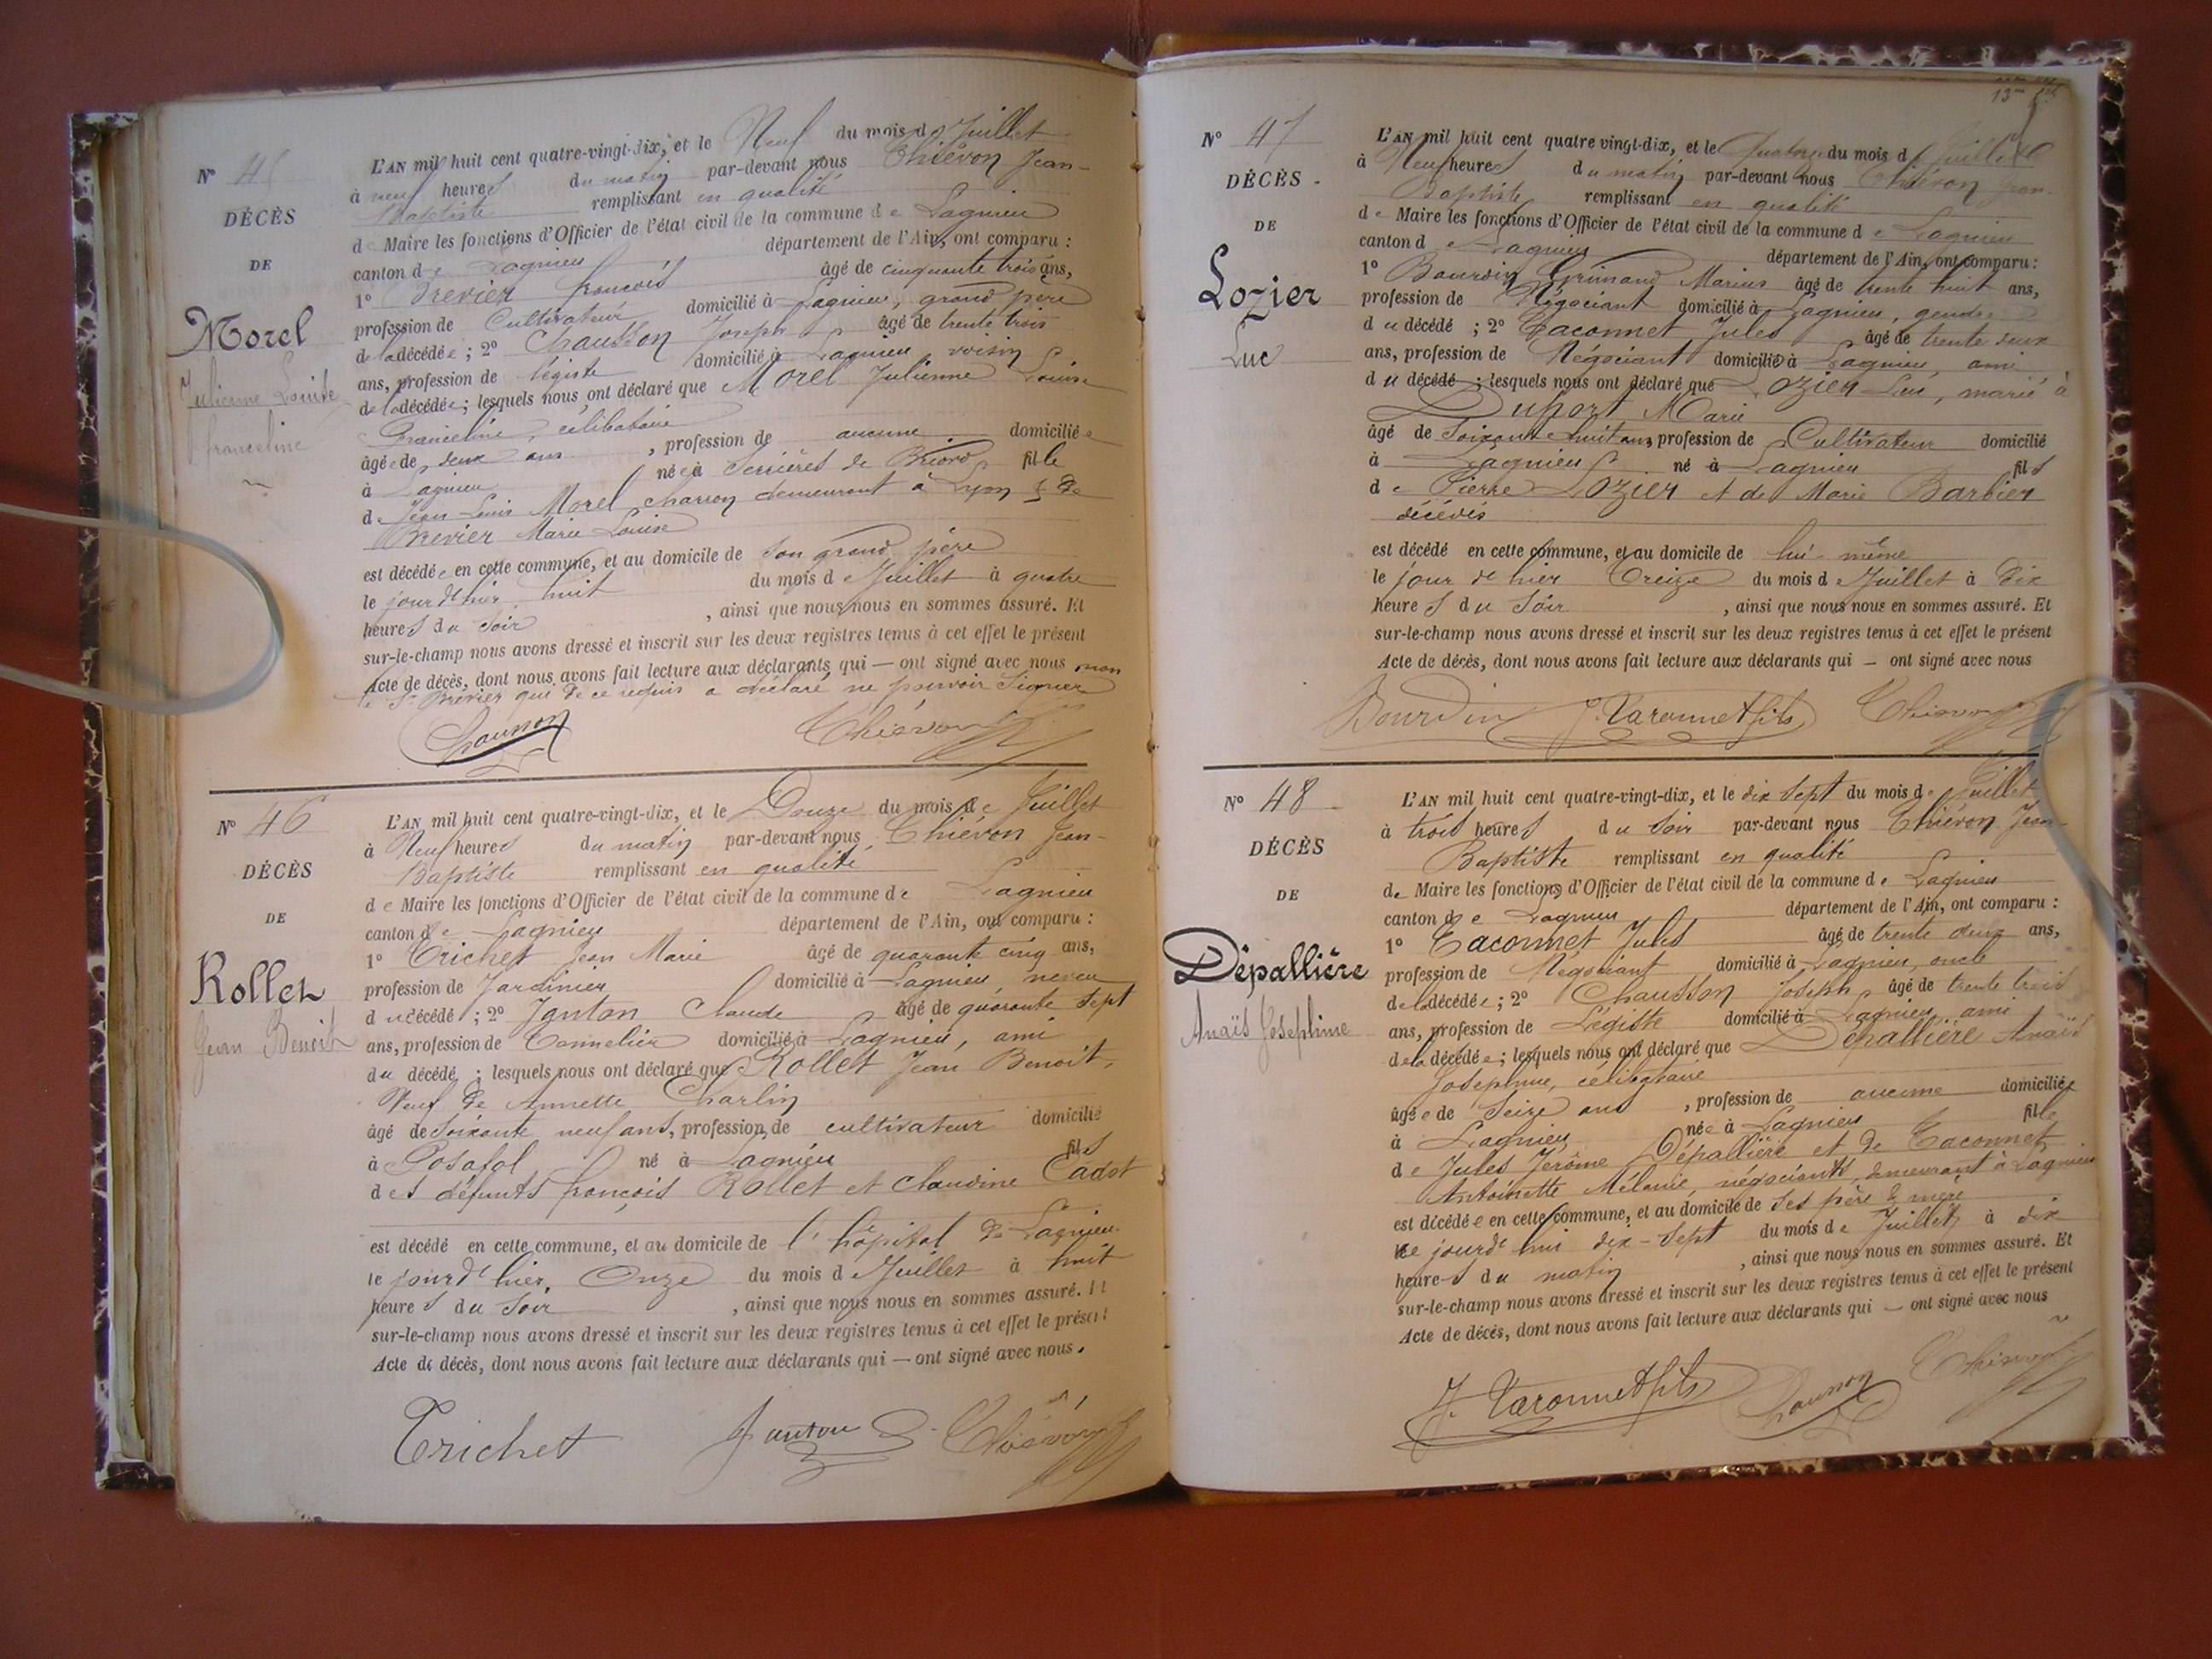 N° 45
DÉCÈS
DE
Morel
Julienne Louise
franceline
L'AN mil huit cent quatre-vingt-dix, et le Neuf du mois de Juillet
à neuf heures du matin par-devant nous Thiévon Jean-
Baptiste remplissant en qualité
de Maire les fonctions d'Officier de l'état civil de la commune de Lagnieu
canton de Lagnieu département de l'Ain, ont comparu :
1° Brevier françois âgé de cinquante trois ans,
profession de Cultivateur domicilié à Lagnieu, grand père
de la décédée ; 2° Chausson Joseph âgé de trente trois
ans, profession de légiste domicilié à Lagnieu, voisin
de la décédée ; lesquels nous ont déclaré que Morel Julienne Louise
Franceline, célibataire
âgée de deux ans , profession de aucune domiciliée
à Lagnieu née à Serrières de Briord fille
de Jean Louis Morel charron demeurant à Lyon & de
Brevier Marie Louise
est décédée en cette commune, et au domicile de son grand père
le jour d'hier huit du mois de Juillet à quatre
heures du soir , ainsi que nous nous en sommes assuré. Et
sur-le-champ nous avons dressé et inscrit sur les deux registres tenus à cet effet le présent
Acte de décès, dont nous avons fait lecture aux déclarants qui — ont signé avec nous non
le Sr Brévier qui de ce requis a déclaré ne pouvoir signer
Chausson Thiévon
N° 46
DÉCÈS
DE
Rollet
Jean Benoit
L'AN mil huit cent quatre-vingt-dix, et le Douze du mois de Juillet
à Neuf heures du matin par-devant nous Thiévon Jean-
Baptiste remplissant en qualité
de Maire les fonctions d'Officier de l'état civil de la commune de Lagnieu
canton de Lagnieu département de l'Ain, ont comparu :
1° Trichet Jean Marie âgé de quarante cinq ans,
profession de Jardinier domicilié à Lagnieu, neveu
du décédé ; 2° Janton Claude âgé de quarante sept
ans, profession de Tonnelier domicilié à Lagnieu, ami
du décédé ; lesquels nous ont déclaré que Rollet Jean Benoit,
Veuf de Annette Charlin
âgé de soixante neuf ans, profession de cultivateur domicilié
à Posafol né à Lagnieu fils
des défunts françois Rollet et Claudine Cadot
est décédé en cette commune, et au domicile de l'hôpital de Lagnieu
le jour d'hier, Onze du mois de Juillet à huit
heures du soir , ainsi que nous nous en sommes assuré. Et
sur-le-champ nous avons dressé et inscrit sur les deux registres tenus à cet effet le présent
Acte de décès, dont nous avons fait lecture aux déclarants qui — ont signé avec nous.
Trichet Janton Thiévon
13me
N° 47
DÉCÈS
DE
Lozier
Luc
L'AN mil huit cent quatre vingt-dix, et le Quatorze du mois de Juillet
à Neuf heures du matin par-devant nous Thiévon Jean-
Baptiste remplissant en qualité
de Maire les fonctions d'Officier de l'état civil de la commune de Lagnieu
canton de Lagnieu département de l'Ain, ont comparu :
1° Bourdin Grimaud Marius âgé de trente huit ans,
profession de Négociant domicilié à Lagnieu, gendre
du décédé ; 2° Taconnet Jules âgé de trente deux
ans, profession de Négociant domicilié à Lagnieu, ami
du décédé ; lesquels nous ont déclaré que Lozier Luc, marié à
Duport Marie
âgé de soixante huit ans, profession de Cultivateur domicilié
à Lagnieu né à Lagnieu fils
de Pierre Lozier et de Marie Barbier
décédés
est décédé en cette commune, et au domicile de lui-même
le jour d'hier Treize du mois de Juillet à dix
heures du soir , ainsi que nous nous en sommes assuré. Et
sur-le-champ nous avons dressé et inscrit sur les deux registres tenus à cet effet le présent
Acte de décès, dont nous avons fait lecture aux déclarants qui — ont signé avec nous
Bourdin J. Taconnet fils Thiévon
N° 48
DÉCÈS
DE
Dépallière
Anaïs Joséphine
L'AN mil huit cent quatre-vingt-dix, et le dix sept du mois de Juillet
à trois heures du soir par-devant nous Thiévon Jean-
Baptiste remplissant en qualité
de Maire les fonctions d'Officier de l'état civil de la commune de Lagnieu
canton de Lagnieu département de l'Ain, ont comparu :
1° Taconnet Jules âgé de trente deux ans,
profession de Négociant domicilié à Lagnieu, oncle
de la décédée ; 2° Chausson Joseph âgé de trente trois
ans, profession de Légiste domicilié à Lagnieu, ami
de la décédée ; lesquels nous ont déclaré que Dépallière Anaïs
Joséphine, célibataire
âgée de seize ans , profession de aucune domiciliée
à Lagnieu née à Lagnieu fille
de Jules Jérôme Dépallière et de Taconnet
Antoinette Mélanie, négociants, demeurant à Lagnieu
est décédée en cette commune, et au domicile de ses père & mère
ce jourd'hui dix-sept du mois de Juillet à dix
heures du matin , ainsi que nous nous en sommes assuré. Et
sur-le-champ nous avons dressé et inscrit sur les deux registres tenus à cet effet le présent
Acte de décès, dont nous avons fait lecture aux déclarants qui — ont signé avec nous
J. Taconnet fils Chausson Thiévon